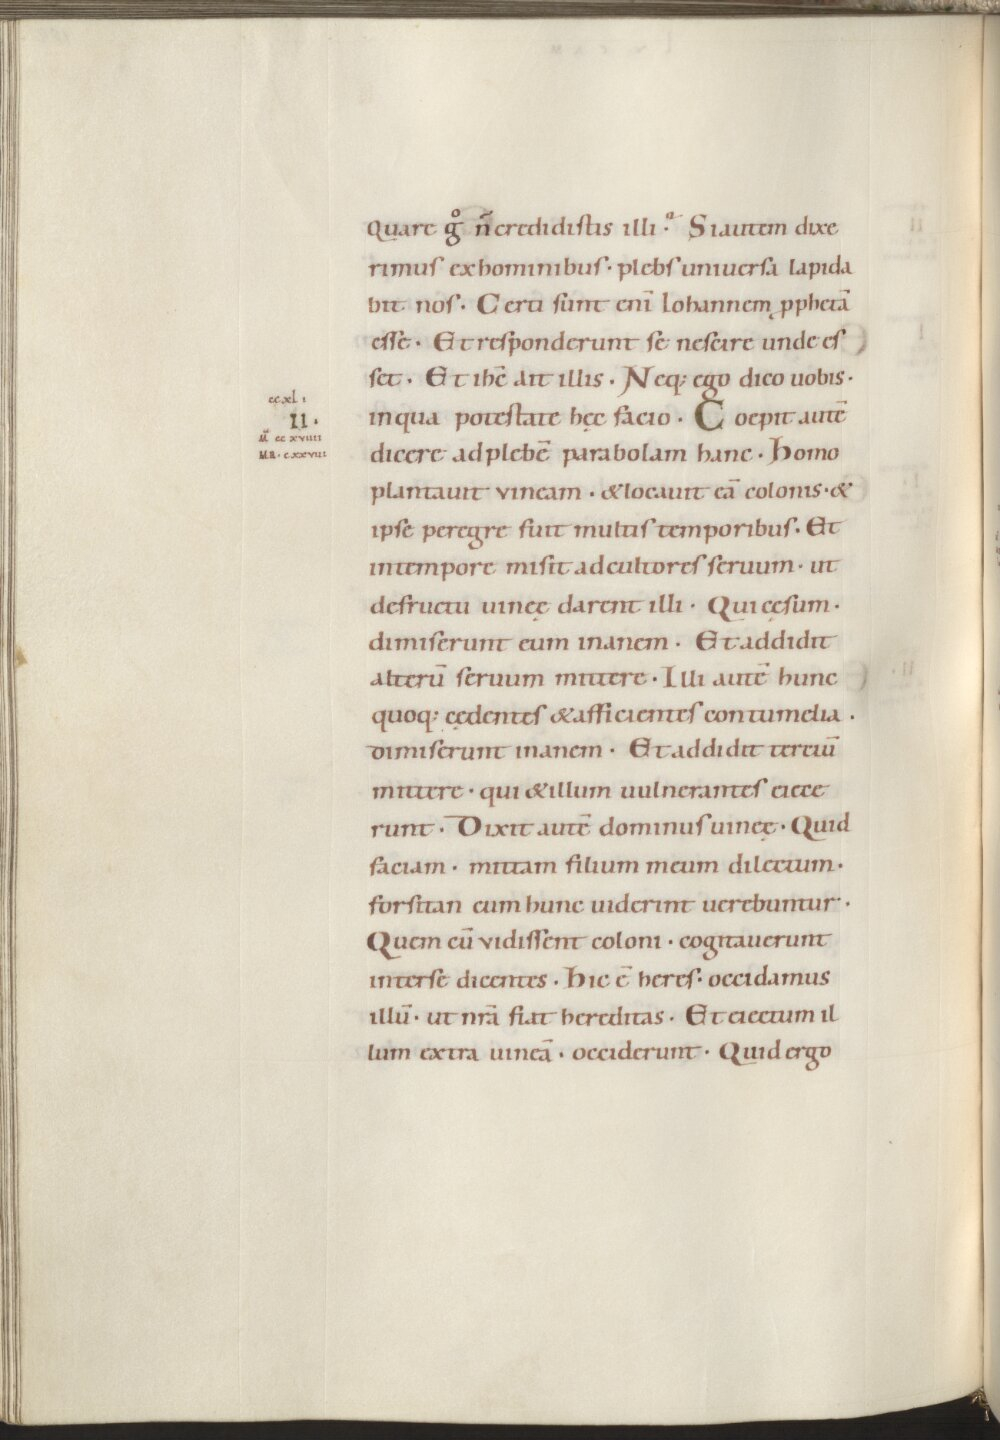 Quare g̊ n̄ credidistis illi· Siautem dixe
rimus exhominibus· plebs uniuersa lapida
bit nos· Certi sunt enī Iohannem pphetā
esse· Et responderunt se nescire unde es
set· Et ihc̄ ait illis· Neq; ego dico uobis·
ccxLi
inqua potestate hęc facio· Coepit autē
II·
M̄ ccxviiii
dicere adplebē parabolam hanc· Homo
MR· cxxvii
plantauit vineam· &locauit eā colonis·&
ipse peregre fuit multis temporibus· Et
intempore misit adcultores seruum· ut
defructu uineę darent illi· Qui cęsum·
dimiserunt eum inanem· Et addidit
alterū seruum mittere· Illi autē hunc
quoq; cędentes &afficientes contumelia·
dimiserunt inanem· Et addidit terciū
mittere· qui &illum uulnerantes eiece
runt· Dixit autē dominus uineę· Quid
faciam· mittam filium meum dilectum·
forsitan cum hunc uiderint uerebuntur·
Quem cū vidissent coloni· cogitauerunt
interse dicentes· Hic ē heres· occidamus
illū· ut nrā fiat hereditas· Et eiectum il
lum extra uineā· occiderunt· Quid ergo